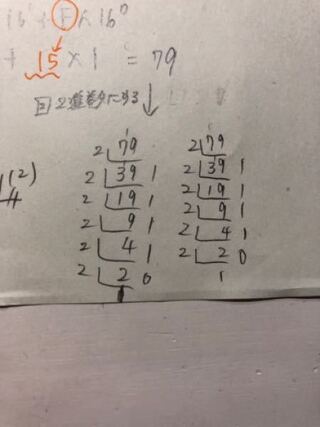 F × 16⁰
+ 15 × 1 = 79
回 2進数にする
2 79 2 79
2 39 1 2 39 1
2 19 1 2 19 1
2 9 1 2 9 1
2 4 1 2 4 1
2 2 0 2 2 0
1 1
(2)